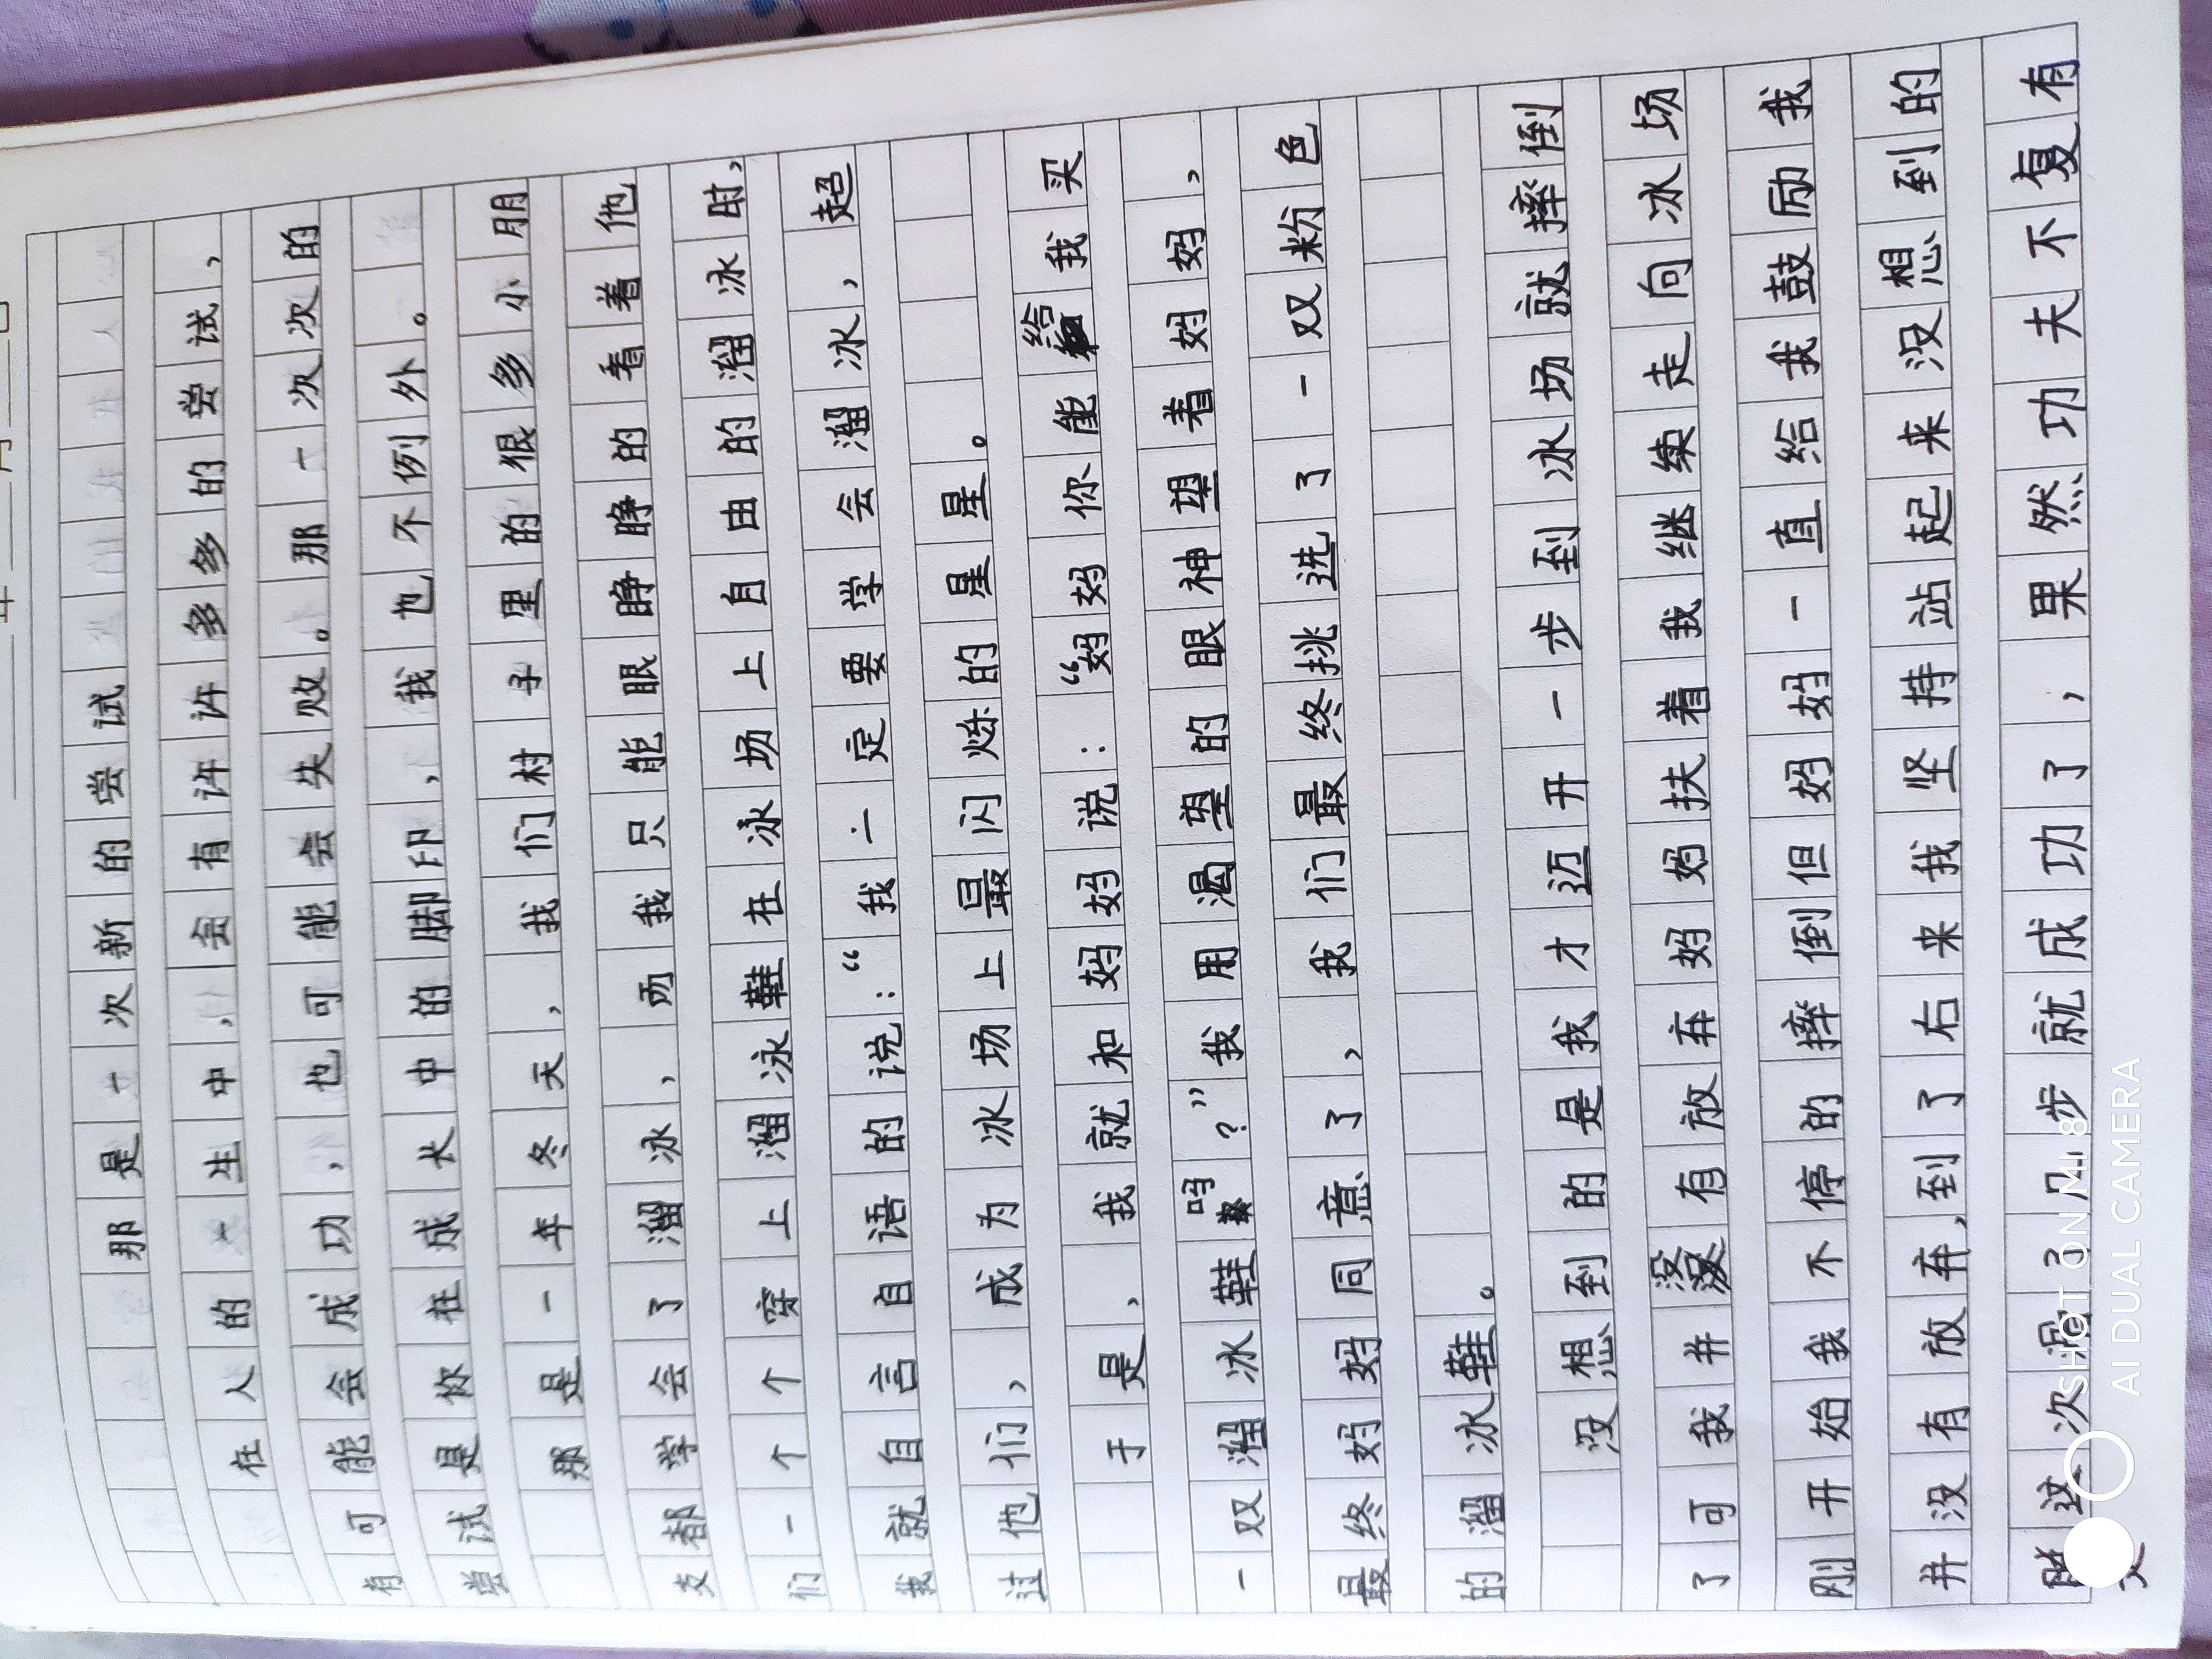 年 月
那是一次新的尝试
在人的一生中,会有许许多多的尝试,
有可能会成功,也可能会失败。那一次次的
尝试是你在成长中的脚印,我也不例外。
那是一年冬天,我们村子里的很多小朋
友都学会了溜冰,而我只能眼睁睁的看着他
们一个个穿上溜冰鞋在冰场上自由的溜冰时,
我就自言自语的说:“我一定要学会溜冰,超
过他们,成为冰场上最闪烁的星星。
于是,我就和妈妈说:“妈妈你能给我买
一双溜冰鞋吗?”我用渴望的眼神望着妈妈,
最终妈妈同意了,我们最终挑选了一双粉色
的溜冰鞋。
没想到的是我才迈开一步到冰场就摔倒
了可我并没有放弃妈妈扶着我继续走向冰场
刚开始我不停的摔倒但妈妈一直给我鼓励我
并没有放弃,到了右来我坚持站起来没想到的
这次滑了几步就成功了,果然功夫不复有
SHOT ON MI 8
AI DUAL CAMERA